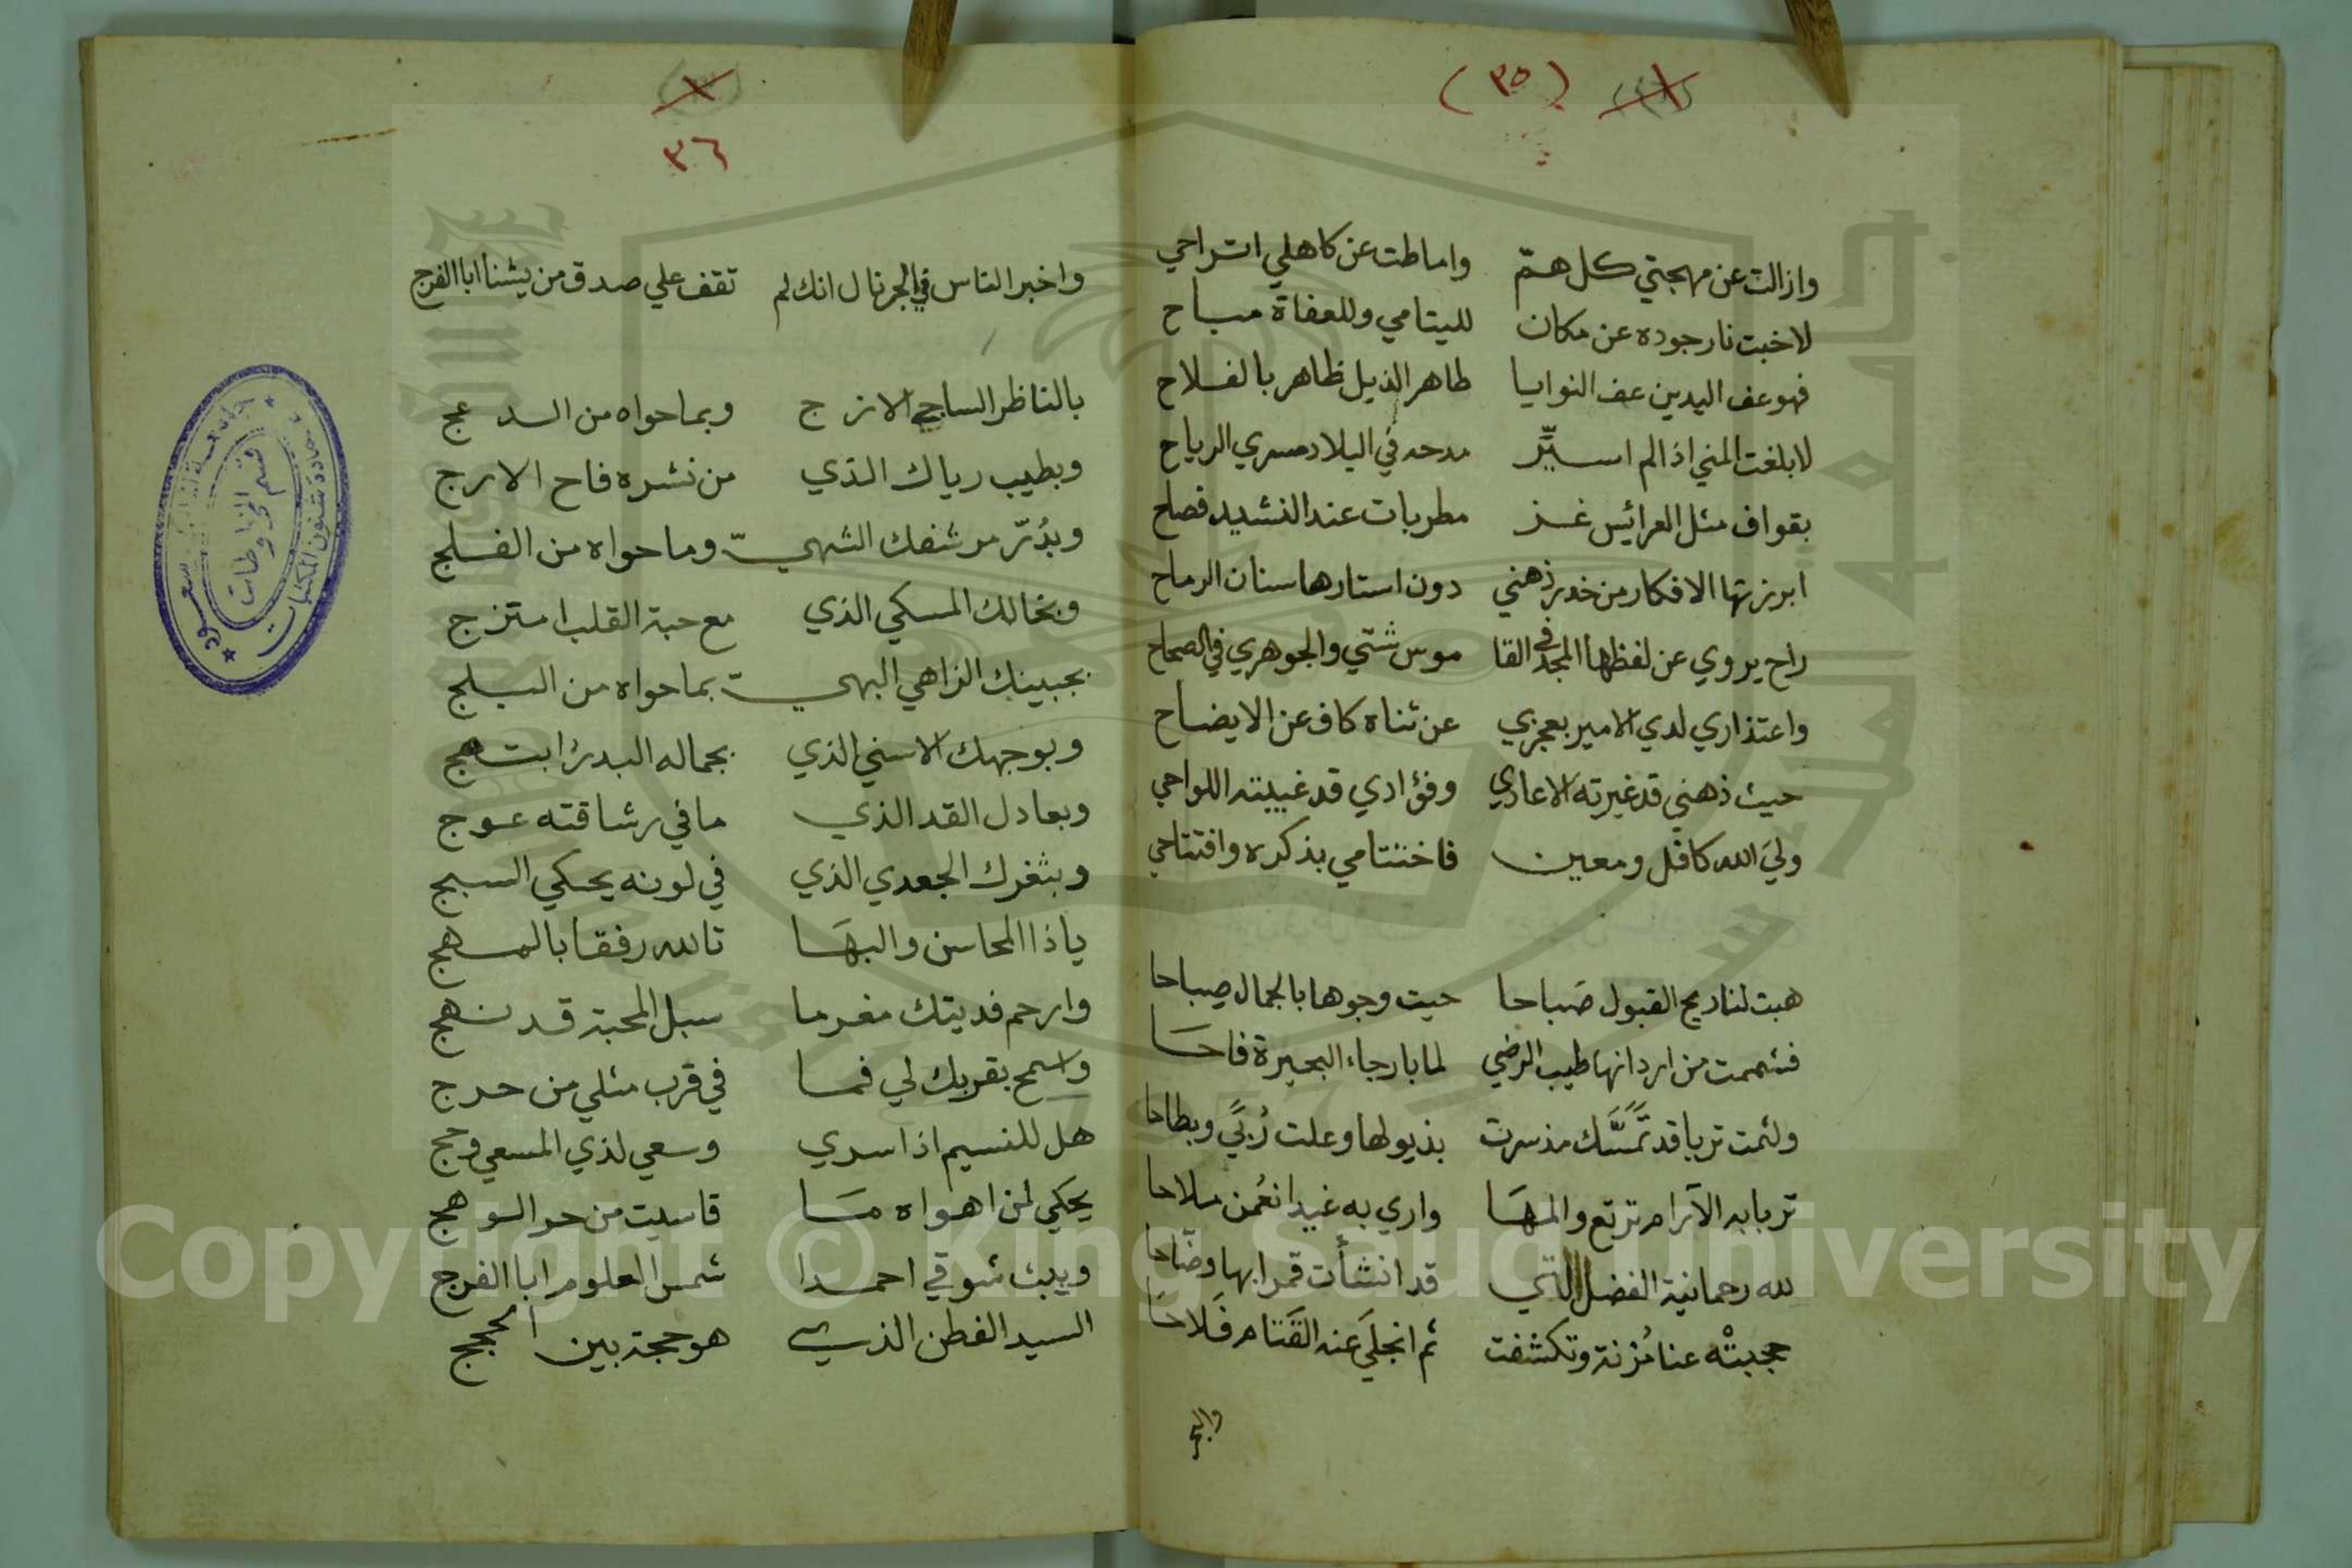 (٣٥)
وازالت عن مهجتي كل همّ واماطت عن كاهلي اتراحي
لاخبت نار جوده عن مكان لليتامي وللعفاة مباح
فهو عف اليدين عف النوايا طاهر الذيل ظاهر بالفلاح
لابلغت المني اذا لم اسيِّر مدحه في البلاد مسري الرياح
بقواف مثل العرائيس غز مطربات عند النشيد فصاح
ابرزتها الافكار من خدر ذهني دون استارها سنان الرماح
راح يروي عن لفظها المجد في القا موس شتي والجوهري في الصحاح
واعتذاري لدي الامير بعجزي عن ثناه كاف عن الايضاح
حيث ذهني قد غيرته الاعادي وفؤادي قد غيبته اللواحي
ولي الله كافل ومعين فاختتامي بذكره وافتتاحي
هبت لنا ريح القبول صَباحا حيت وجوها بالجمال صِباحا
فشممت من اردانها طيب الرضي لما بارجاء البحيرة فاحَا
ولثمت تربا قد تَمَسَّك مذ سرت بذيولها وعلت رُبيً وبطاحا
تربا به الآرام ترتع والمهَا واري به غيدا نعُمن ملاحا
لله رحمانية الفضل التي قد انشأت قمرا بها وضّاحا
حجبتْه عنا مُزنة وتكشفت ثم انجلَي عنه القَتام فَلاحَا
٣٦
واخبر الناس في الجرنال انك لم تقف علي صدق من يشنا ابا الفرج
بالناظر الساجي الازج وبما حواه من الدعج
وبطيب رياك الذي من نشره فاح الارج
وبدُرّ مرشفك الشهيّ وما حواه من الفلج
وبخالك المسكي الذي مع حبة القلب امتزج
بجبينك الزاهي البهي بما حواه من البلج
وبوجهك الاسني الذي بجماله البدر ابتهج
وبعادل القد الذي ما في رشاقته عوج
وبثغرك الجعدي الذي في لونه يحكي السبج
ياذا المحاسن والبهَا تالله رفقا بالمهج
وارحم فديتك مغرما سبل المحبة قد نهج
واسمح بقربك لي فما في قرب مثلي من حرج
هل للنسيم اذا سري وسعي لذي المسعي وحج
يحكي لمن اهواه مَا قاسيت من حر الوهج
ويبث شوقي احمدا شمس العلوم ابا الفرج
السيد الفطن الذي هو حجة بين الحجج
جامعة الملك سعود
عمادة شئون المكتبات
قسم المخطوطات
Copyright © King Saud University